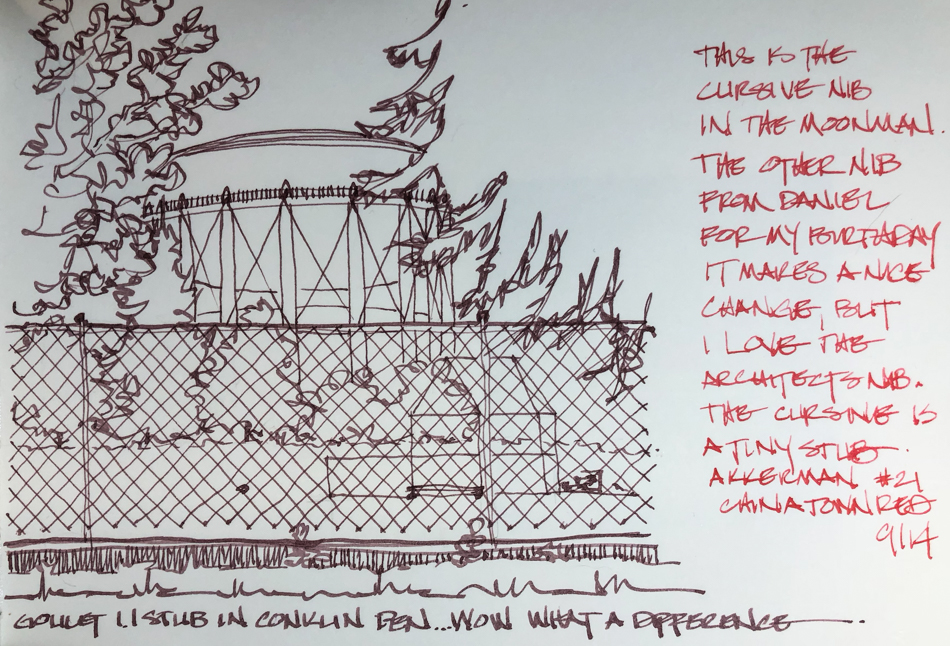 THIS IS THE
CURSIVE NIB
IN THE MOONMAN.
THE OTHER NIB
FROM DANIEL
FOR MY BIRTHDAY
IT MAKES A NICE
CHANGE, BUT
I LOVE THE
ARCHITECTS NIB.
THE CURSIVE IS
A TINY STUB.
AKKERMAN #21
CHINATOWN RED
9/14
GOULET 1.1 STUB IN CONKLIN PEN...WOW WHAT A DIFFERENCE.